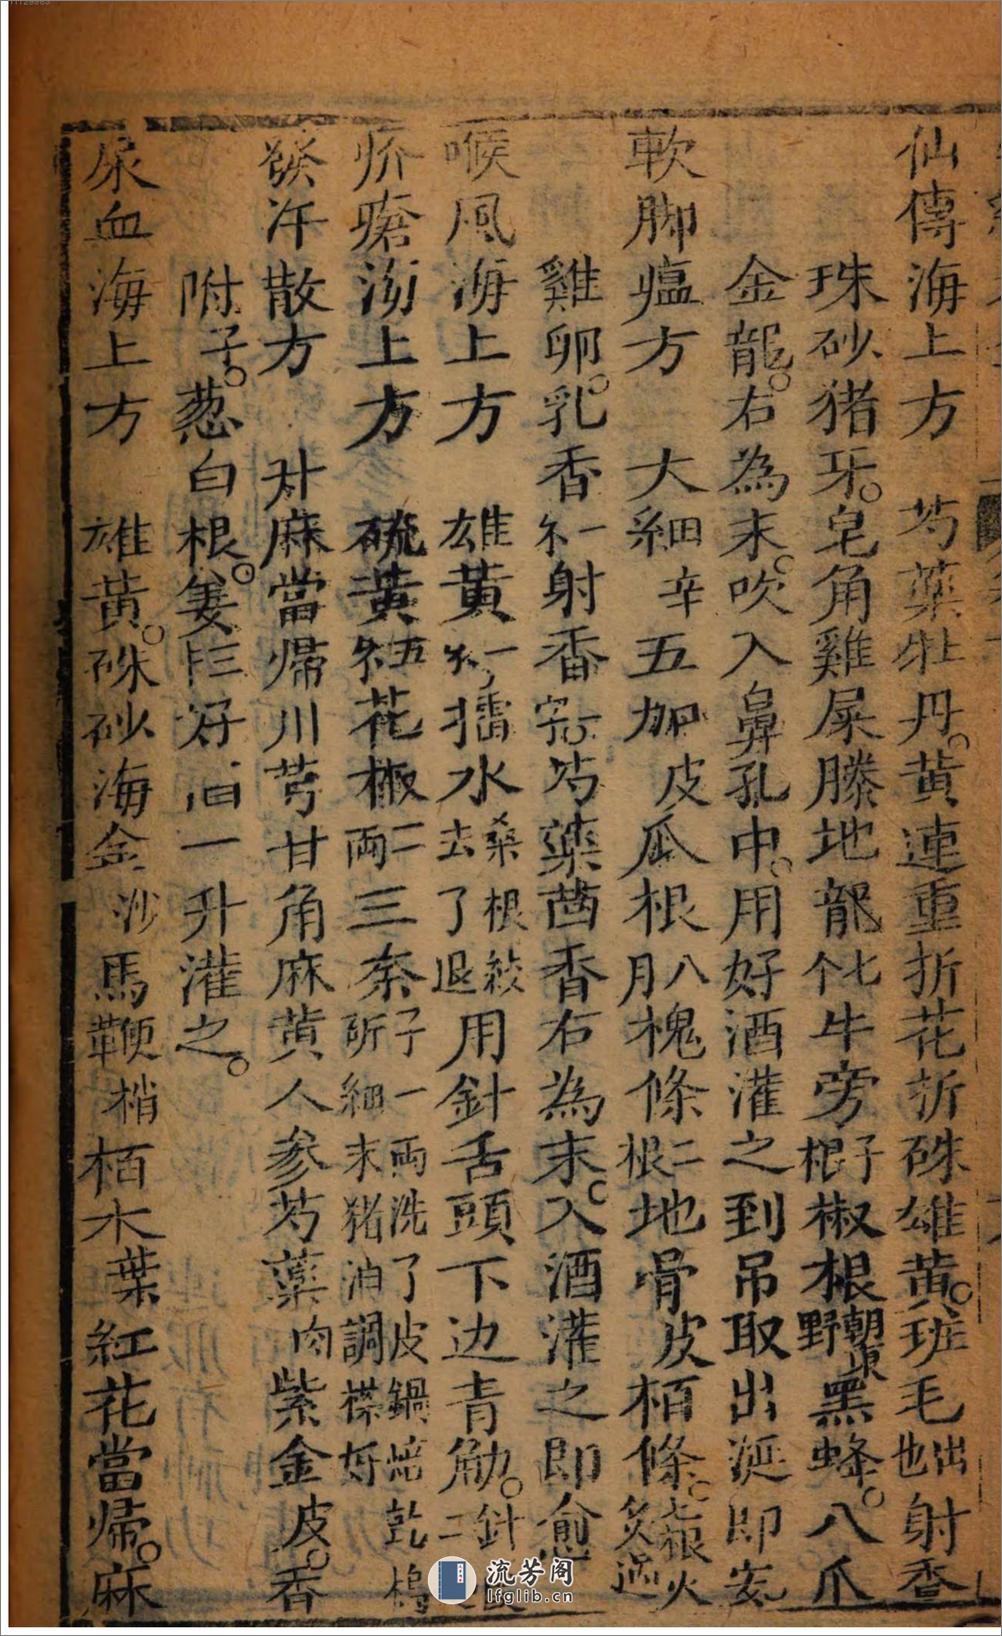 仙傳海上方 芍薬牡丹。黃連重折花斫硃雄黃。班毛出也射香
珠砂猪牙。皂角雞屎滕地龍七个牛旁子根椒根朝東野黑蜂。八爪
金龍。右為末。吹入鼻孔中。用好酒灌之到吊取出涎即安
軟脚瘟方 大細辛五加皮瓜根八月槐條二根地骨皮栢條。七根火炙過
雞卵。乳香一射香芍薬茴香右為末。入酒灌之即愈
喉風海上方 雄黃擂水桑根去了退用針舌頭下边青觔。針
疥瘡海上方 硫黃五花椒二兩三柰子一兩洗了皮鍋焙乾搗斫細末猪油調搽好
發汗散方 升麻當帰川芎甘角麻黃人參芍薬肉紫金皮。香
附子。葱白根。姜三好酒一升灌之。
尿血海上方 雄黃。硃砂海金沙馬鞭梢栢木葉紅花當帰。麻
流芳阁
lfglib.cn